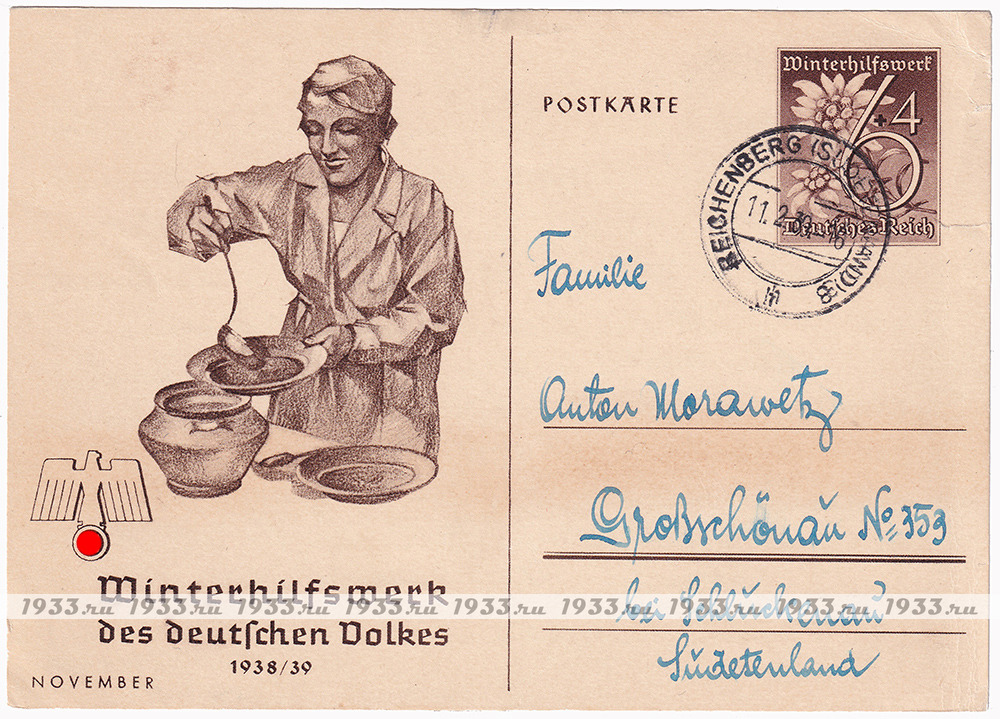 Winterhilfswerk
des deutschen Volkes
1938/39
NOVEMBER
POSTKARTE
Winterhilfswerk
6+4
Deutsches Reich
REICHENBERG (SUDETENLAND) 8
11.2.39
h
Familie
Anton Morawetz
Großschönau No 353
bei Schluckenau
Sudetenland
1933.ru 1933.ru 1933.ru 1933.ru 1933.ru 1933.ru 1933.ru 1933.ru 1933.ru